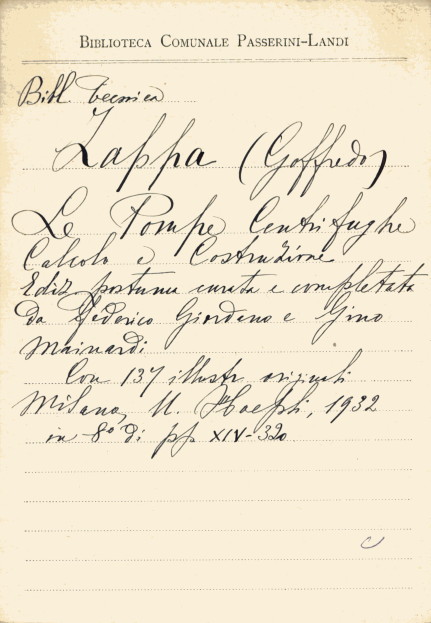 BIBLIOTECA COMUNALE PASSERINI-LANDI
Bibl. tecnica
Zappa (Goffredo)
Le Pompe Centrifughe
Calcolo e Costruzione
Ediz. postuma curata e completata
da Federico Giordano e Gino
Mainardi
Con 137 illustr. originali
Milano, U. Hoepli, 1932
in 8º di pp XIV-320